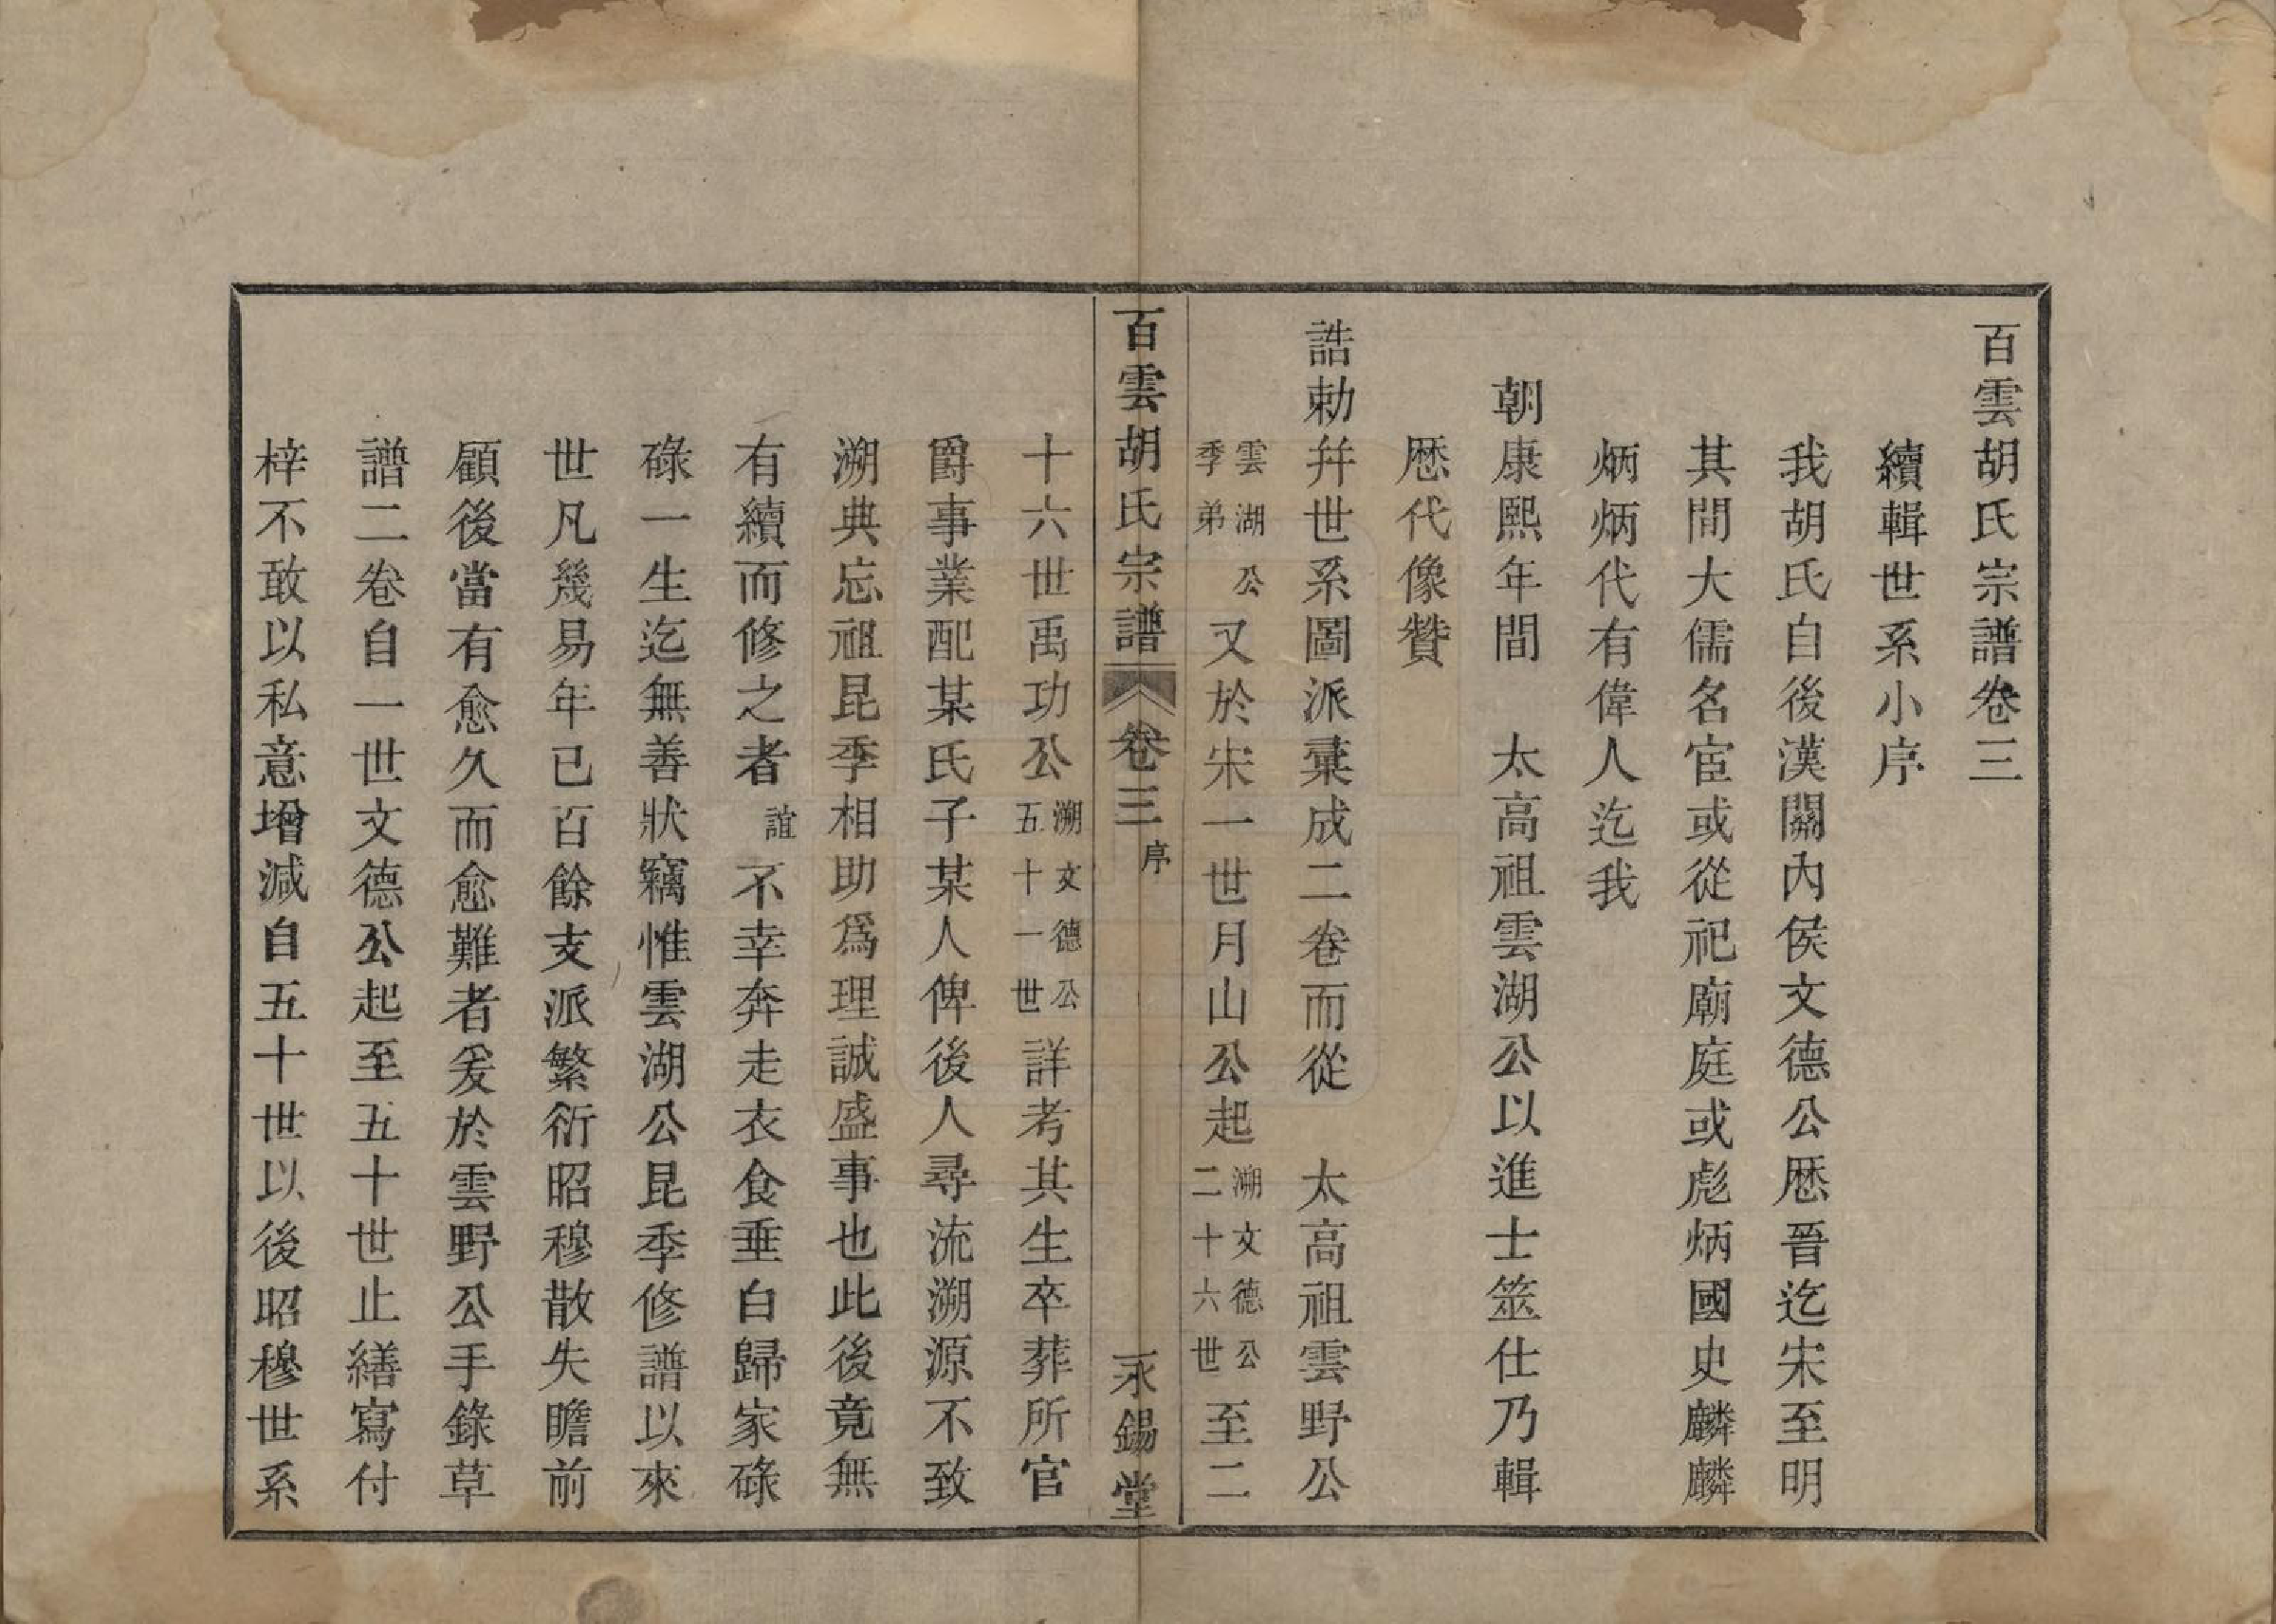 百雲胡氏宗譜卷三
續輯世系小序
我胡氏自後漢關內侯文德公歷晉迄宋至明
其間大儒名宦或從祀廟庭或彪炳國史麟麟
炳炳代有偉人迄我
朝康熙年間　太高祖雲湖公以進士筮仕乃輯
歷代像贊
誥勅幷世系圖派彙成二卷而從　太高祖雲野公
雲湖公
季弟
又於宋一世月山公起
溯文德公
二十六世
至二
百雲胡氏宗譜
卷三
序
永錫堂
十六世禹功公
溯文德公
五十一世
詳考其生卒葬所官
爵事業配某氏子某人俾後人尋流溯源不致
溯典忘祖昆季相助爲理誠盛事也此後竟無
有續而修之者
誼
不幸奔走衣食垂白歸家碌
碌一生迄無善狀竊惟雲湖公昆季修譜以來
世凡幾易年已百餘支派繁衍昭穆散失瞻前
顧後當有愈久而愈難者爰於雲野公手錄草
譜二卷自一世文德公起至五十世止繕寫付
梓不敢以私意增減自五十世以後昭穆世系